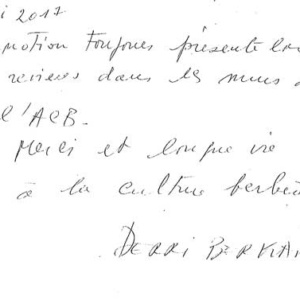 i 2017
motion toujours présente lor
reviens dans les murs d
l'ACB.
Merci et longue vie
à la culture berbè
DERRI BERKAN